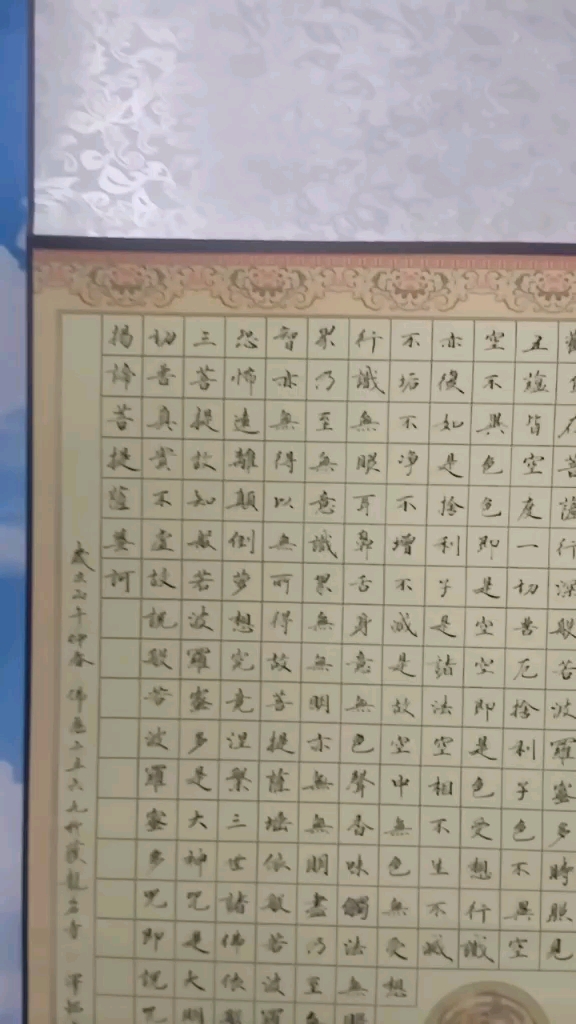 在菩薩行深般若波羅蜜多時照見
五蘊皆空度一切苦厄捨利子色不異空
空不異色色即是空空即是色受想行識
亦復如是捨利子是諸法空相不生不滅
不垢不淨不增不減是故空中無色無受想
行識無眼耳鼻舌身意無色聲香味觸法無眼
界乃至無意識界無無明亦無無明盡乃至無
智亦無得以無所得故菩提薩埵依般若波羅
恐怖遠離顛倒夢想究竟涅槃三世諸佛依般
三菩提故知般若波羅蜜多是大神咒是大明
切苦真實不虛故說般若波羅蜜多咒即說咒
揭諦菩提薩婆訶
歲次丙午仲春 佛歷二五六九